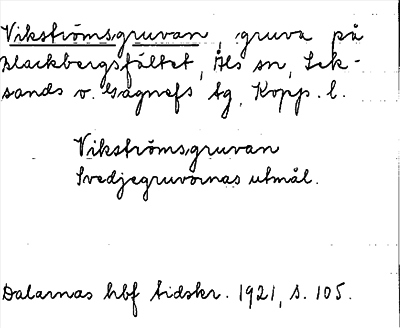 Vikströmsgruvan, gruva på
Klackbergsfältet, Åls sn, Lek-
sands o. Gagnefs tg, Kopp. l.
Vikströmsgruvan
Svedjegruvornas utmål.
Dalarnas hbf tidskr. 1921, s. 105.